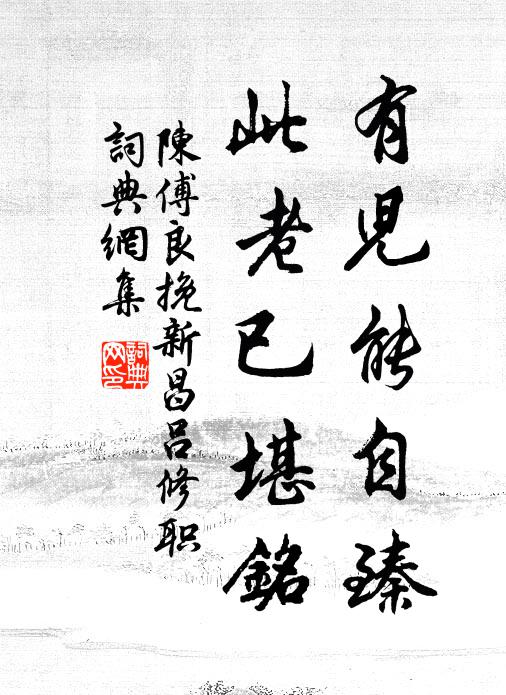 有児能自臻
此老已堪銘
陳傅良挽新昌吕修职
詞典網集
詞典
网印